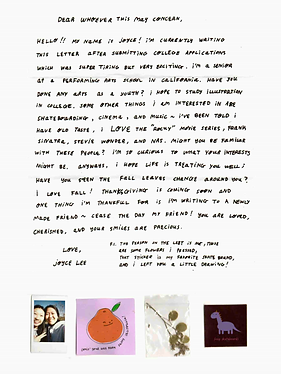 DEAR WHOEVER THIS MAY CONCERN,
HELLO!! MY NAME IS JOYCE! I'M CURRENTLY WRITING
THIS LETTER AFTER SUBMITTING COLLEGE APPLICATIONS
WHICH WAS SUPER TIRING BUT VERY EXCITING. I'M A SENIOR
AT A PERFORMING ARTS SCHOOL IN CALIFORNIA. HAVE YOU
DONE ANY ARTS AS A YOUTH? I HOPE TO STUDY ILLUSTRATION
IN COLLEGE. SOME OTHER THINGS I AM INTERESTED IN ARE
SKATEBOARDING, CINEMA, AND MUSIC ~ I'VE BEEN TOLD I
HAVE OLD TASTE, I LOVE THE "ROCKY" MOVIE SERIES, FRANK
SINATRA, STEVIE WONDER, AND NAS. MIGHT YOU BE FAMILIAR
WITH THESE PEOPLE? I'M SO CURIOUS TO WHAT YOUR INTERESTS
MIGHT BE. ANYWAYS, I HOPE LIFE IS TREATING YOU WELL!
HAVE YOU SEEN THE FALL LEAVES CHANGE AROUND YOU?
I LOVE FALL! THANKSGIVING IS COMING SOON AND
ONE THING I'M THANKFUL FOR IS I'M WRITING TO A NEWLY
MADE FRIEND ~ CEASE THE DAY MY FRIEND! YOU ARE LOVED,
CHERISHED, AND YOUR SMILES ARE PRECIOUS.
LOVE,
JOYCE LEE
PS. THE PERSON ON THE LEFT IS ME, THERE
ARE SOME FLOWERS I PRESSED,
THAT STICKER IS MY FAVORITE SKATE BRAND,
AND I LEFT YOU A LITTLE DRAWING!